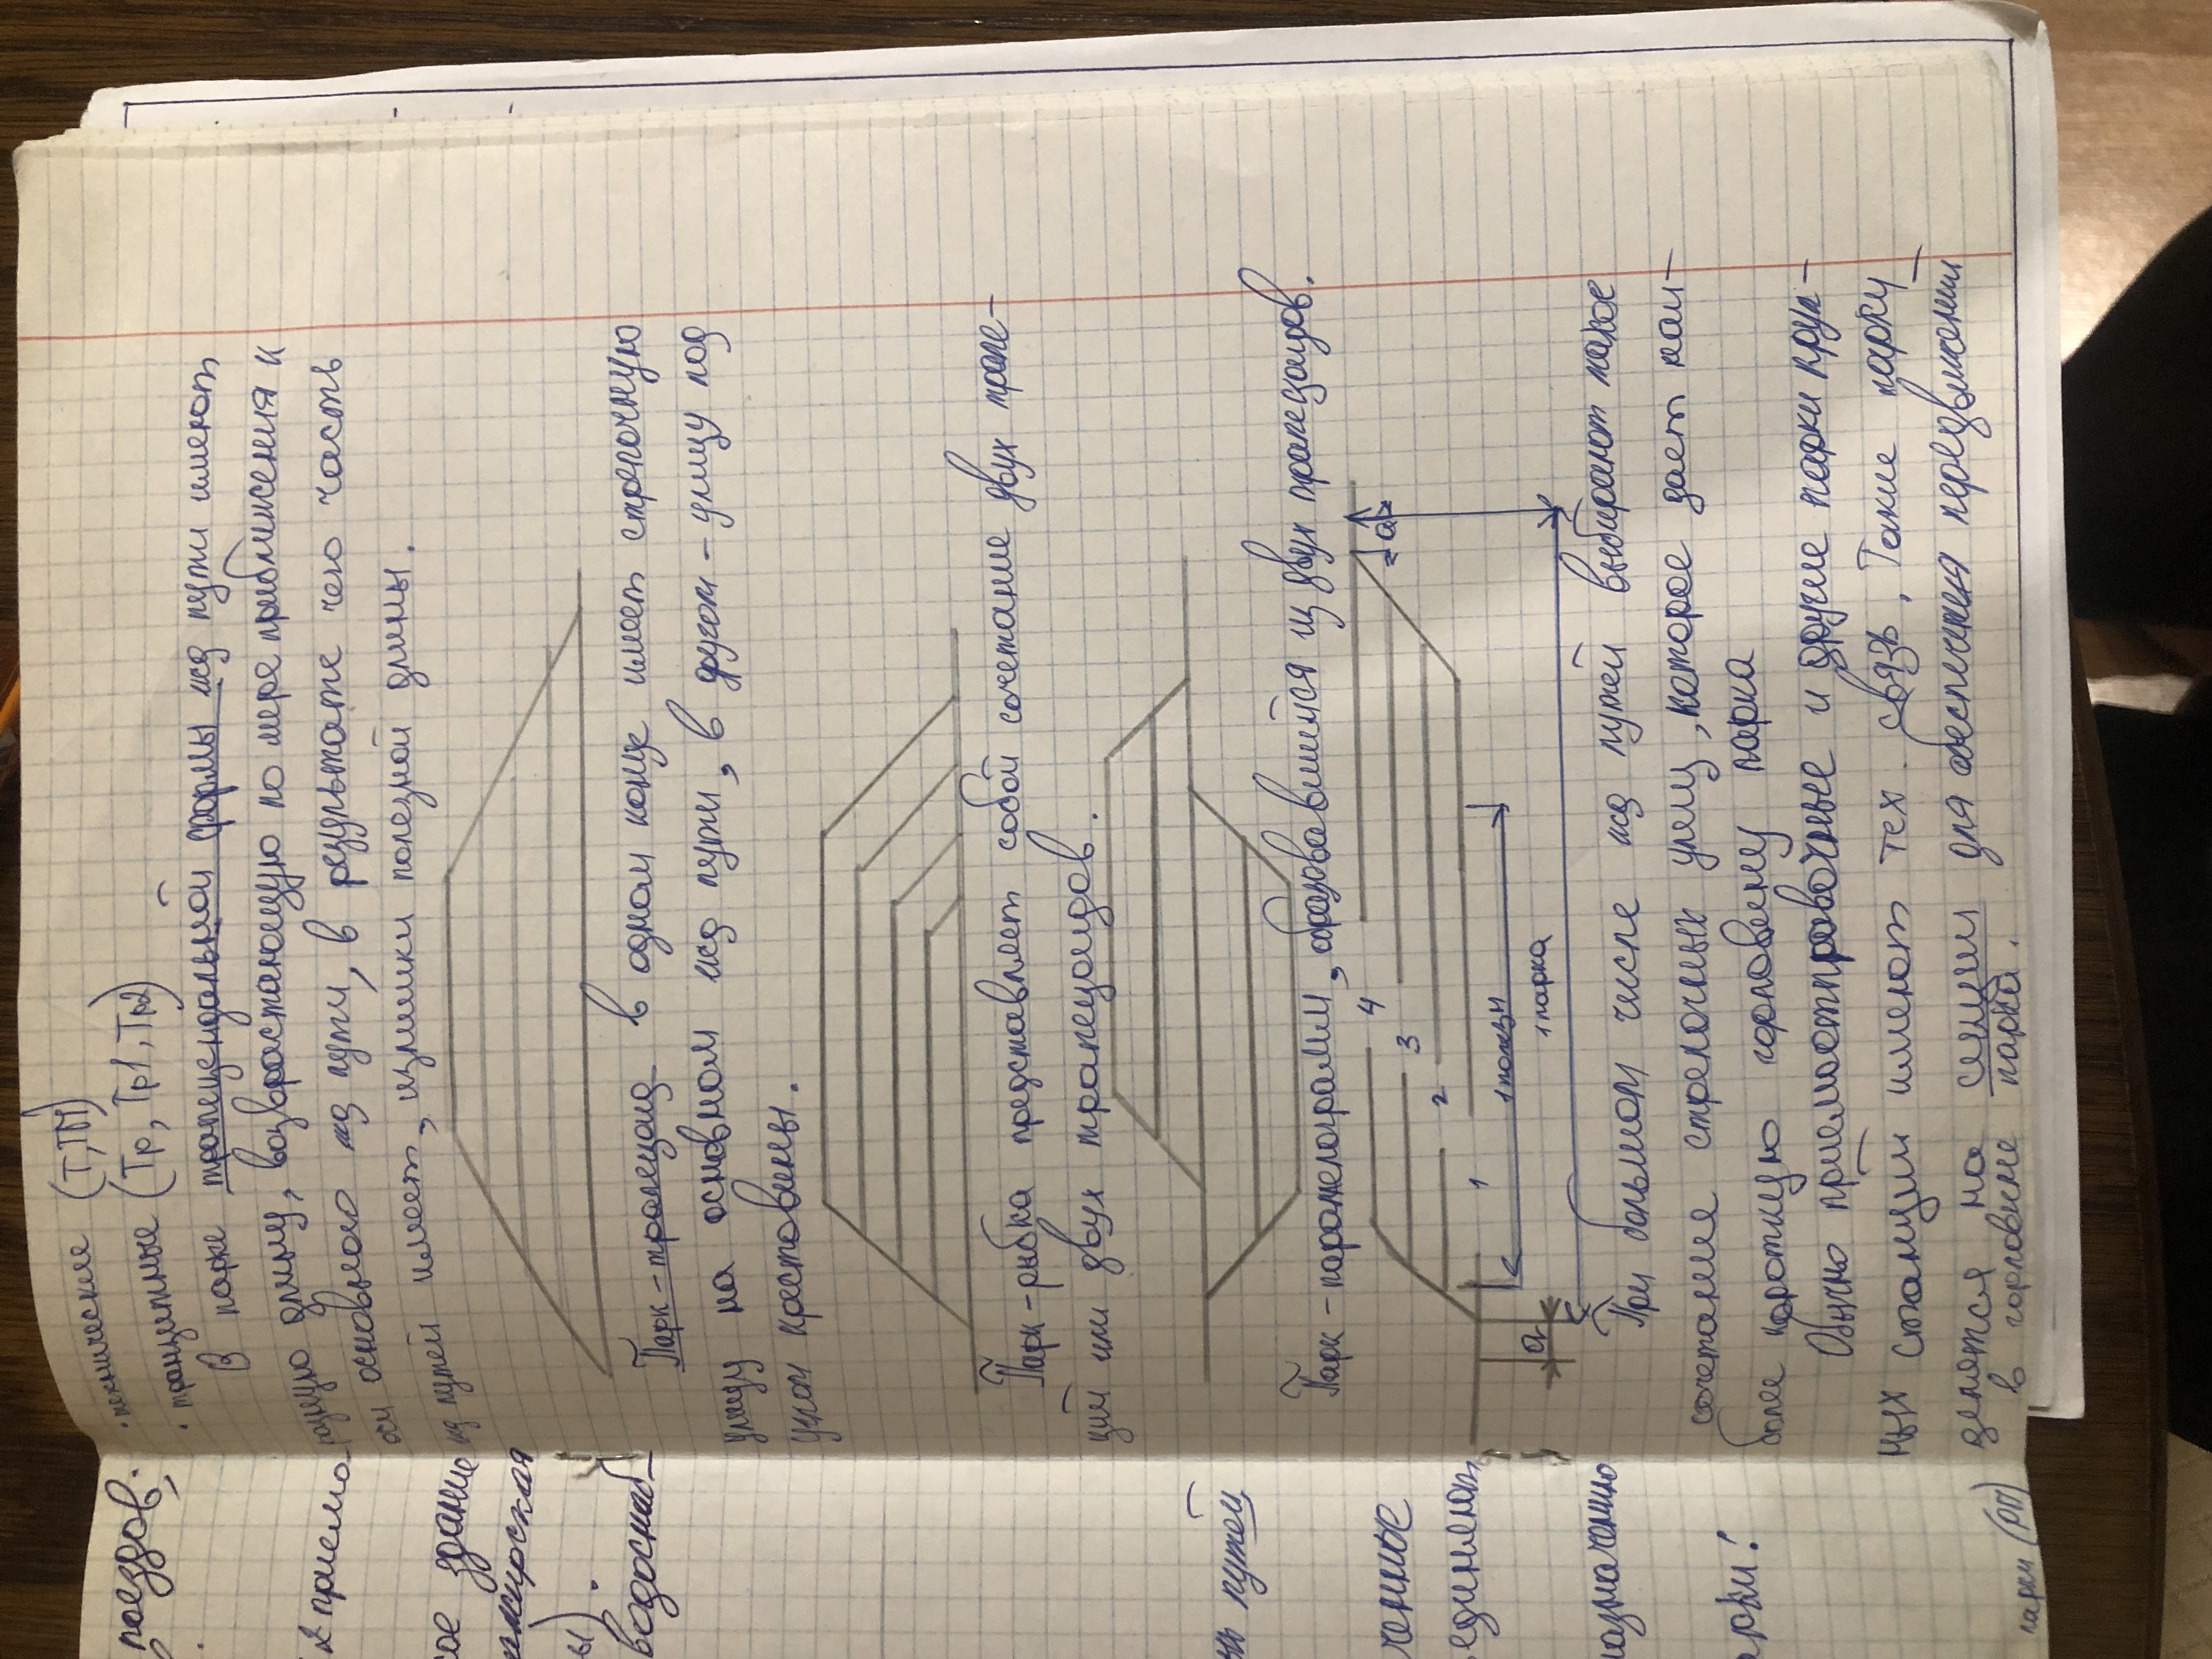 · технические (Т, ТМ)
· транзитные (Тр, Тр1, Тр2)
В парке трапецидальной формы жд пути имеют
разную длину, возврастающую по мере приближения к
оси основного жд пути, в результате чего часть
из путей имеет, излишки полезной длины.
Парк-трапеция в одном конце имеет стрелочную
улицу на основном жд пути, в другом - улицу под
углом крестовины.
Парк-рыбка представляет собой сочетание двух трапе-
ций или двух трапецоидов.
Парк-параллелограмм, образовавшийся из двух трапецоидов.
4
3
2
1
1 парка
а
а
При большом числе жд путей выбирают такое
сочетание стрелочных улиц, которое дает наи-
более короткую горловину парка
Обычно приемоотправочные и другие парки круп-
ных станции имеют тех. связь. Такие парки
делятся на секции для обеспечения передвижений
в горловине парка.
поездов,
2 приема
ое здание
ы).
водоснаб-
нь путей
ченные
единяют
парки (РП)